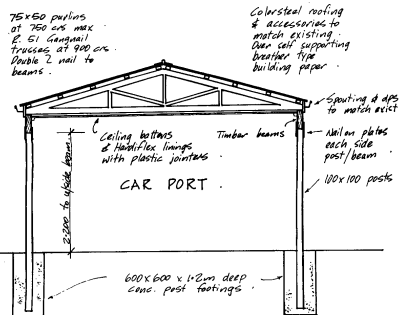 75x50 purlins
at 750 crs max
E. 51 Gangnail
trusses at 900 crs.
Double Z nail to
beams.
Colorsteel roofing
& accessories to
match existing.
Over self supporting
breather type
building paper.
Spouting & dps
to match exist.
Ceiling battens
& Hardiflex linings
with plastic jointers.
Timber beams
Nail on plates
each side
post/beam.
CAR PORT.
100x100 posts
2.200 to u/side beam.
600x600 x 1.2m deep
conc. post footings.